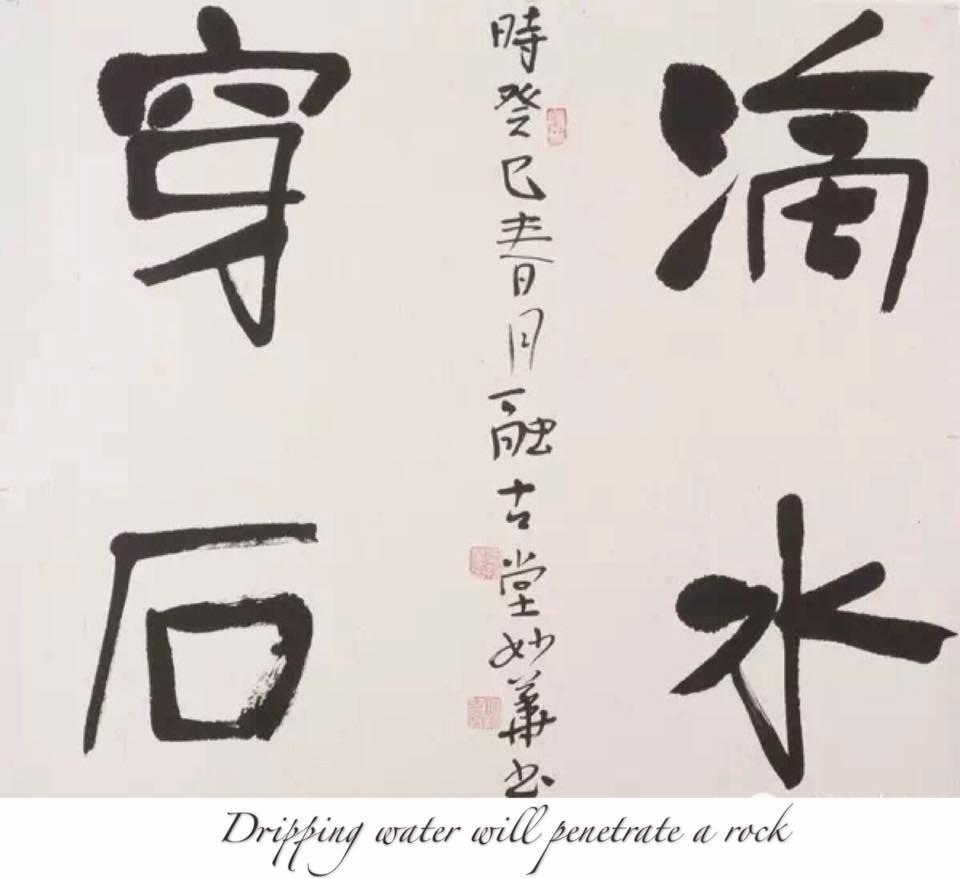 滴水
時癸巳春月融古堂妙華书
穿石
Dripping water will penetrate a rock